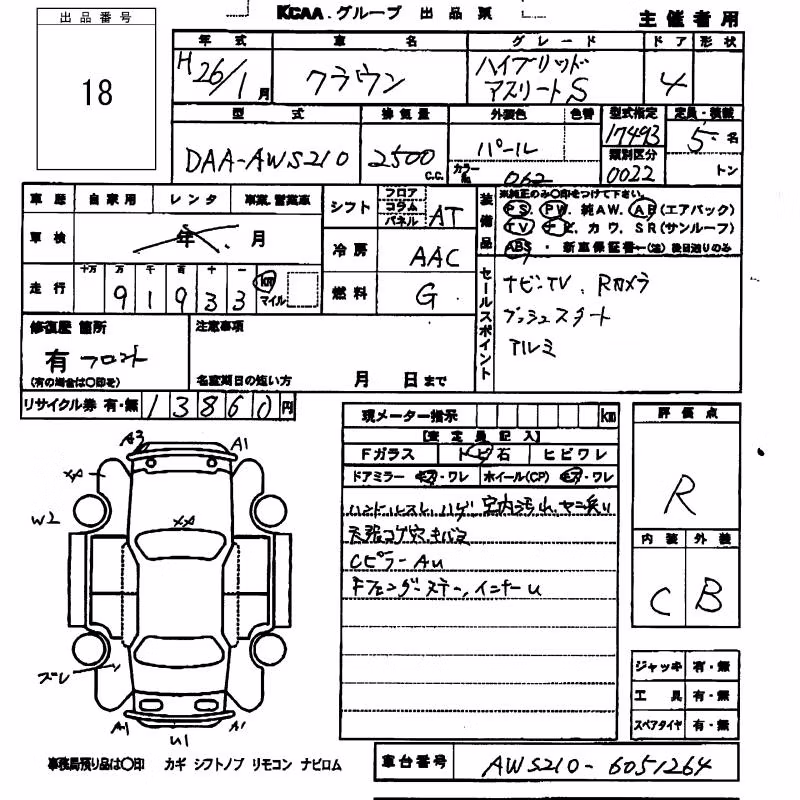 KCAA.グループ 出品票
主催者用
出品番号
18
年式 車名 グレード ドア 形状
H26/1月 クラウン ハイブリッド アスリートS 4
型式 排気量 外装色 色替 型式指定 定員・積載
DAA-AWS210 2500 C.C. パール 17493 5名
カラーNo. 062 類別区分 0022 トン
車歴 自家用 レンタ 事業.営業車
車検 年 月
走行 十万 万 千 百 十 一
91933 km マイル
シフト フロア コラム パネル AT
冷房 AAC
燃料 G
装備品 ※純正のみ○印をつけて下さい。
PS. PW. 純AW. AB(エアバック)
TV ナビ. カワ. SR(サンルーフ)
ABS ・新車保証書―(注)後日送りのみ
セールスポイント
ナビ・TV、Rカメラ
プッシュスタート
アルミ
修復歴 箇所
有 フロント
(有の場合は○印を)
注意事項
名変期日の短い方 月 日まで
リサイクル券 有・無 13860円
現メーター指示 km
【査定員記入】
Fガラス トビ石 ヒビワレ
ドアミラー キズ・ワレ ホイール(CP) キズ・ワレ
ハンドルスレ、ハゲ 室内汚れ、ヤニ臭い
天張コゲ穴、キバミ
CピラーAU
Fフェンダーステー、インナーU
評価点
R
内装 外装
C B
ジャッキ 有・無
工具 有・無
スペアタイヤ 有・無
A3 A1
XA
W2
XA
ズレ
A1 U1 A1
事務局預り品は○印 カギ シフトノブ リモコン ナビロム
車台番号 AWS210-6051264